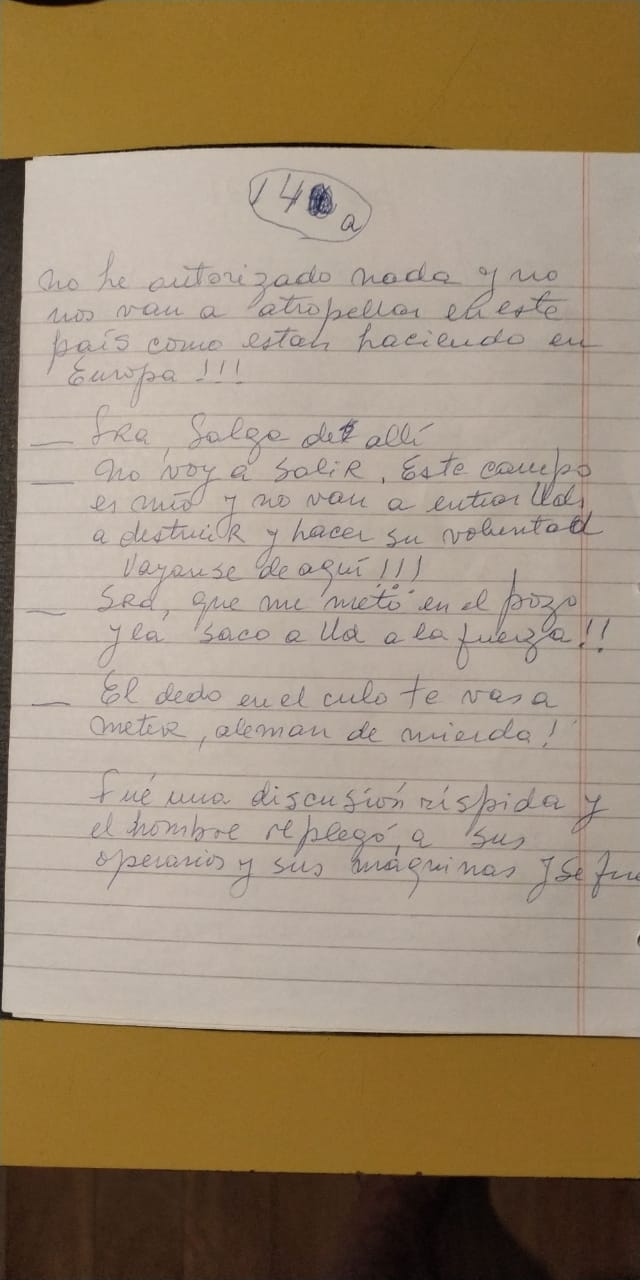 14 a
no he autorizado nada y no
nos van a atropellar en este
país como estan haciendo en
Europa !!!
— Sra, Salga de allí
— No voy a saliR. Este campo
es mío y no van a entrar Uds
a destruiR y hacer su voluntad
Vayanse de aquí !!!
— SRa, que me meto en el pozo
y la saco a Ud a la fuerza!!
— El dedo en el culo te vas a
meteR, aleman de mierda!
Fué una discusión ríspida y
el hombre replegó a sus
operarios y sus máquinas y se fue